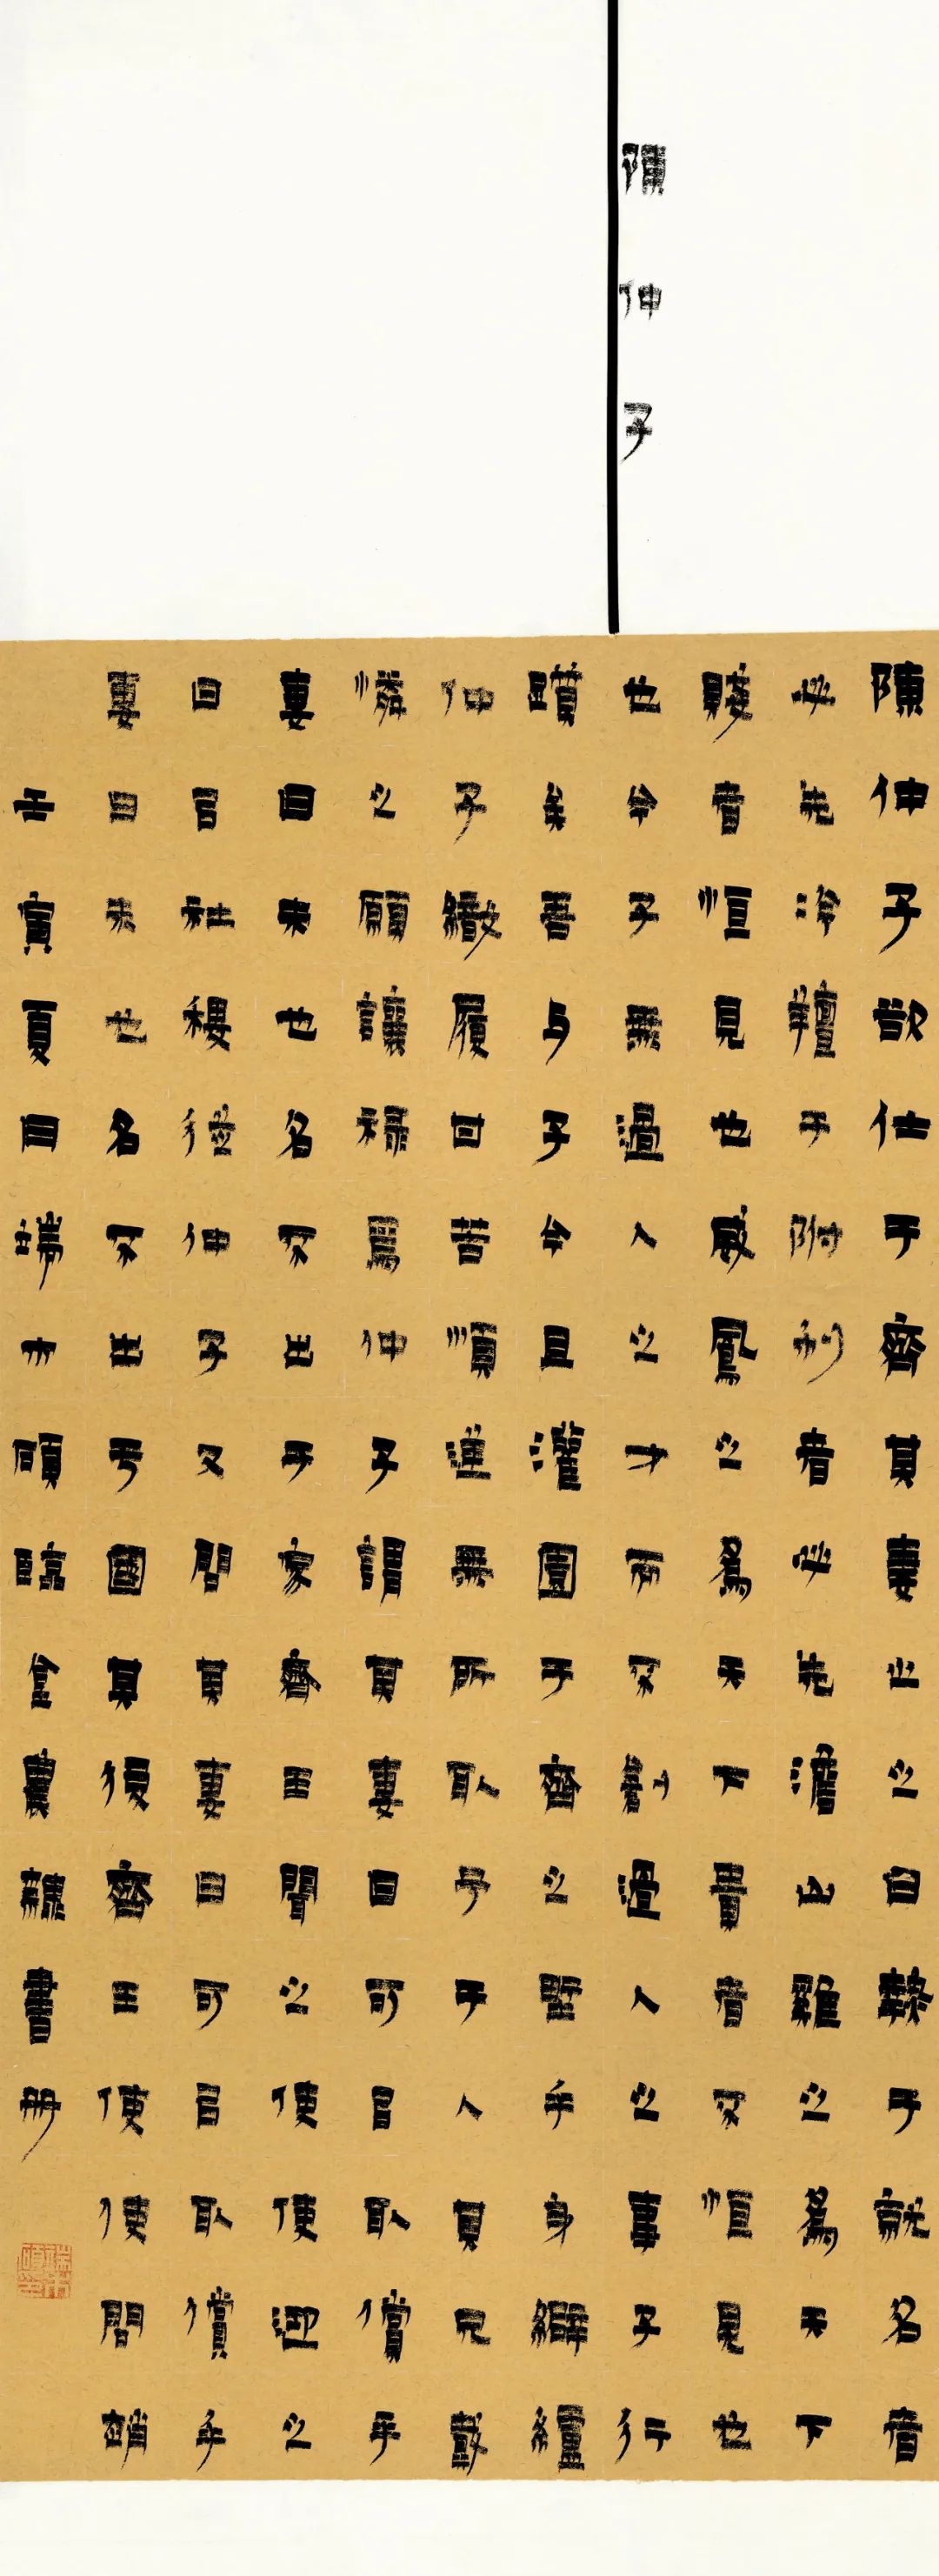 陳仲子
陳仲子欲仕于齊其妻止之曰熱于就名者
必先冷羶于附利者必先澹山雞之爲天下
賤者恒見也威鳳之爲天下貴者不恒見也
也今子無過人之才而不創過人之事子行
躓矣吾与子今且灌園于齊之野乎身纑
仲子緻履甘苦順進無所取予于人其兄戴
憐之願讓祿焉仲子謂其妻曰可㠯取償乎
妻曰未也名不出于家齊王聞之使使迎之
曰㠯社稷從仲子又問其妻曰可㠯取償乎
妻曰未也名不出于國其後齊王使使問趙
壬寅夏日端木碩臨金農隸書冊